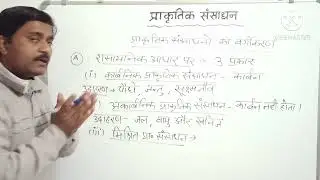 प्राकृतिक संसाधन
प्राकृतिक संसाधनों का वर्गीकरण
(A) रासायनिक आधार पर = 3 प्रकार
(i) कार्बनिक प्राकृतिक संसाधन - कार्बन
उदाहरण → पौधे, जन्तु, सूक्ष्मजीव
अकार्बनिक प्राकृतिक संसाधन - कार्बन नहीं होता।
उदाहरण - जल, वायु और खनिज
(iii) मिश्रित प्रा० संसाधन →